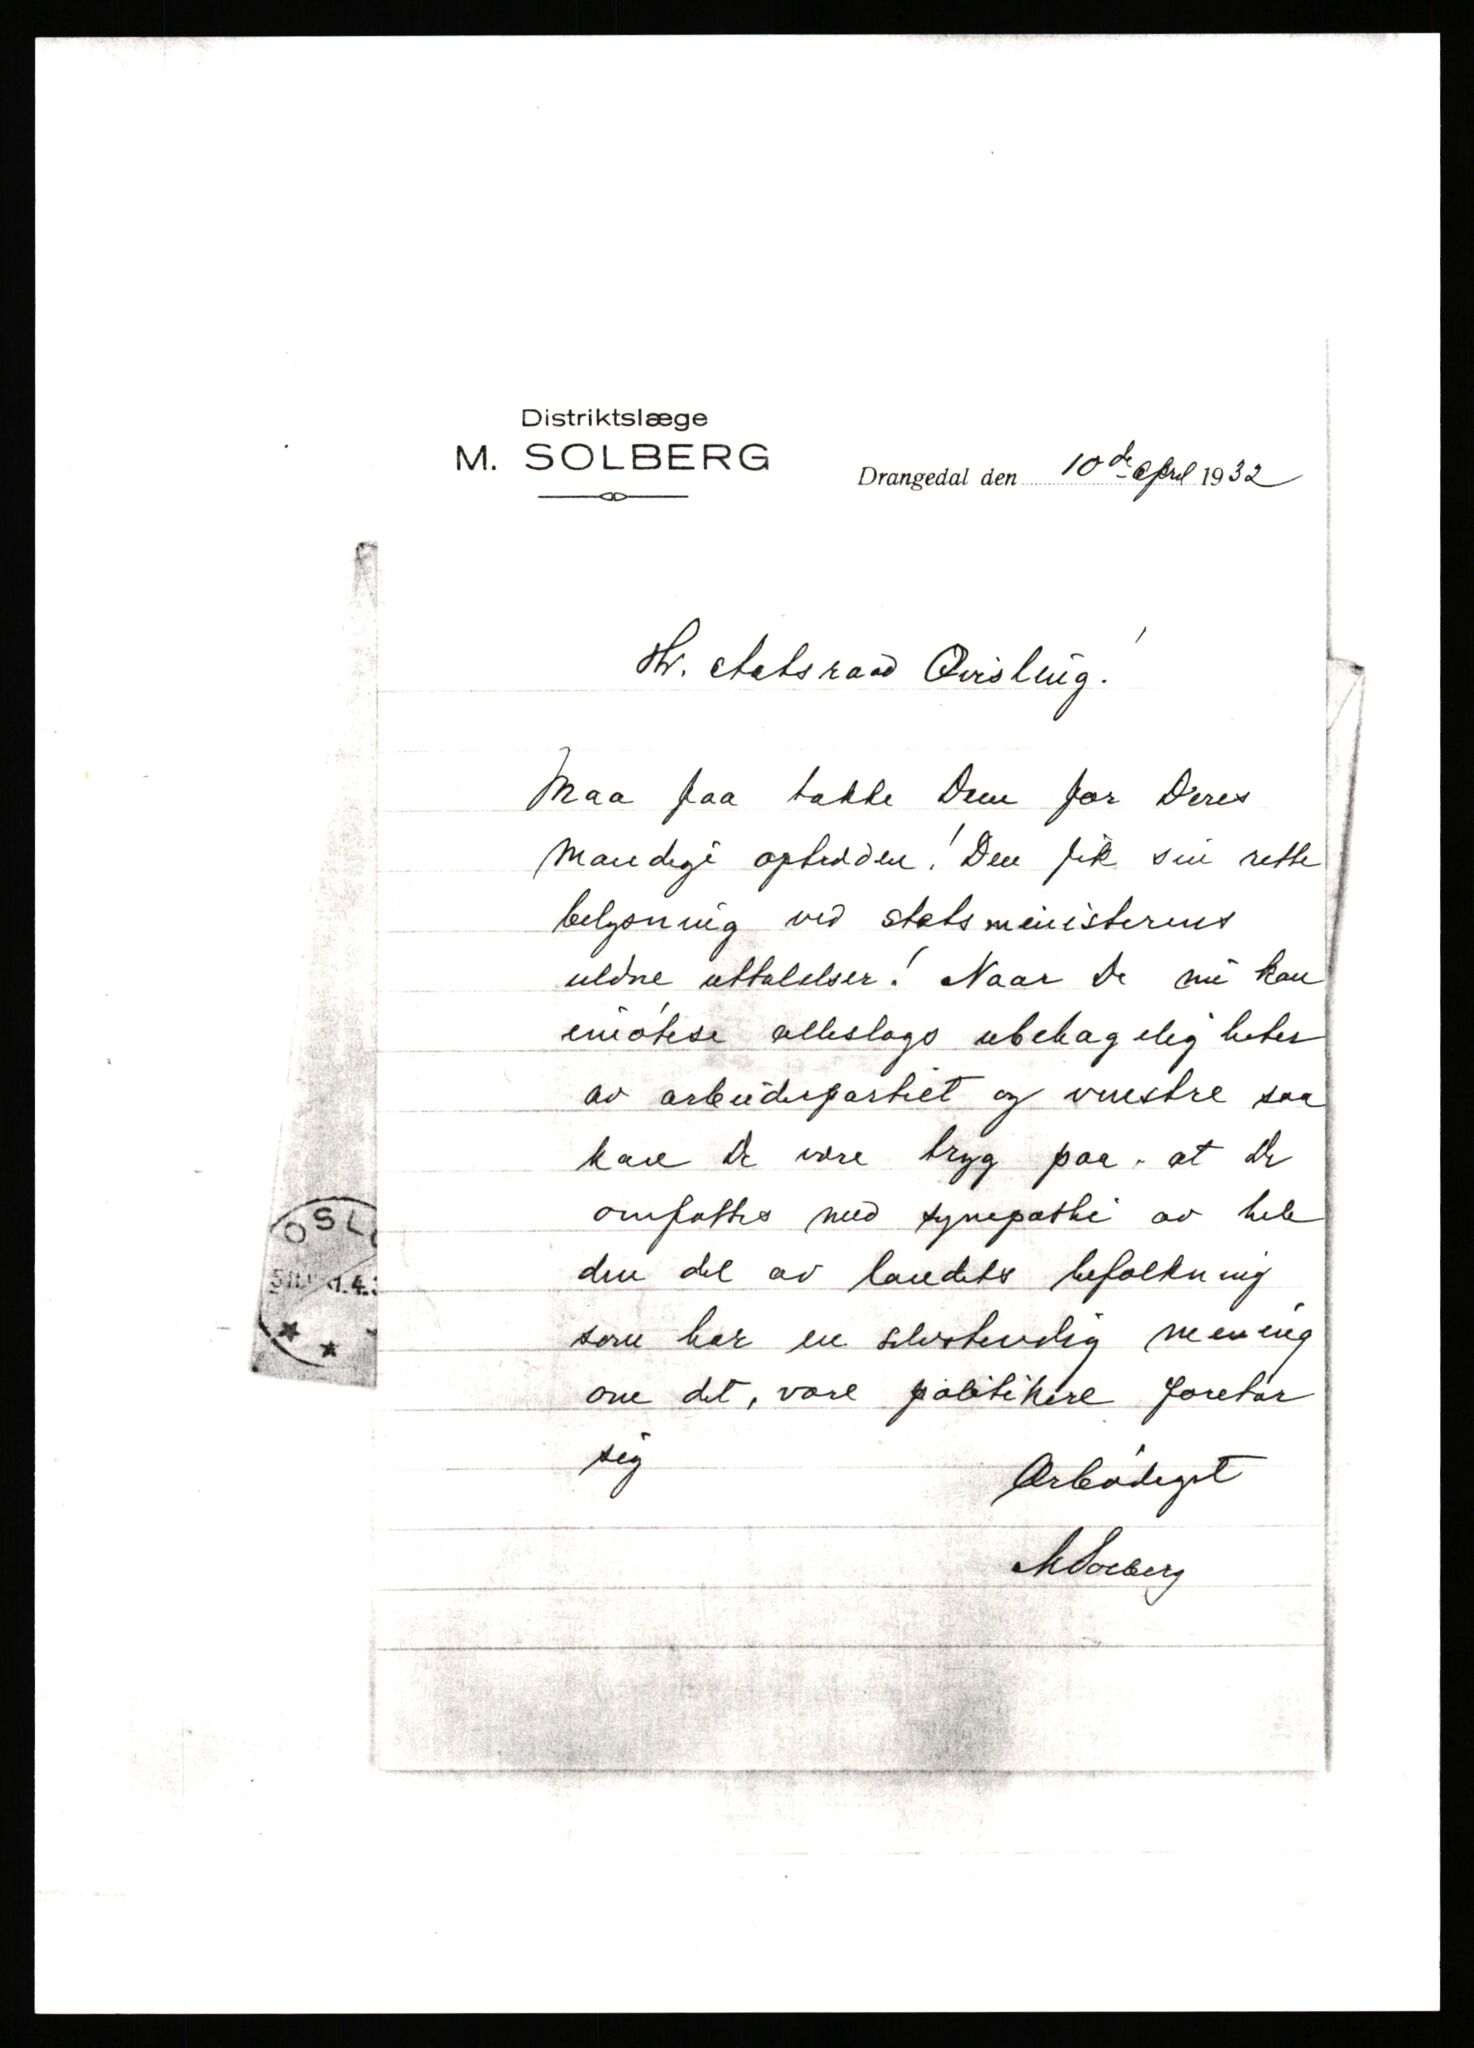 Distriktslæge
M. SOLBERG
Drangedal den 10de april 1932
Hr. statsraad Qvisling!
Maa faa takke Dem for Deres
mandige optræden! Den fik sin rette
belysning ved statsministerens
uldne uttalelser! Naar De nu kan
imøtese alleslags ubehageligheter
av arbeiderpartiet og venstre saa
kan De være tryg paa. at De
omfattes med sympathi av hele
den del av landets befolkning
som har en selvstendig mening
om det, vore politikere foretar
sig
Ærbødigst
MSolberg
OSLO
1.4.3